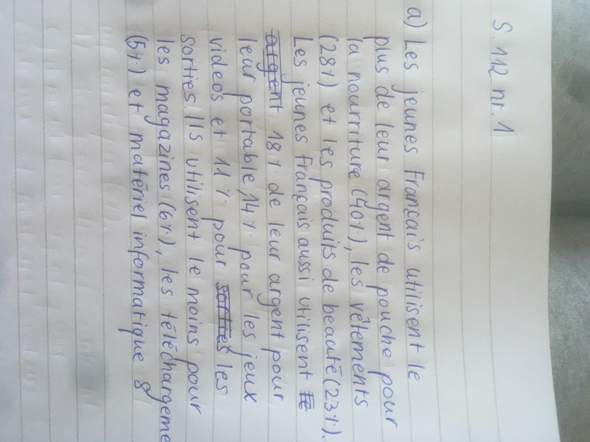 S. 112 nr. 1
a) Les jeunes Français utilisent le
plus de leur argent de pouche pour
la nourriture (40%), les vêtements
(28%) et les produits de beauté (23%).
Les jeunes français aussi utilisent
18% de leur argent pour
leur portable, 14% pour les jeux
videos et 11% pour les
sorties. Ils utilisent le moins pour
les magazines (6%), les téléchargeme
(5%) et matériel informatique